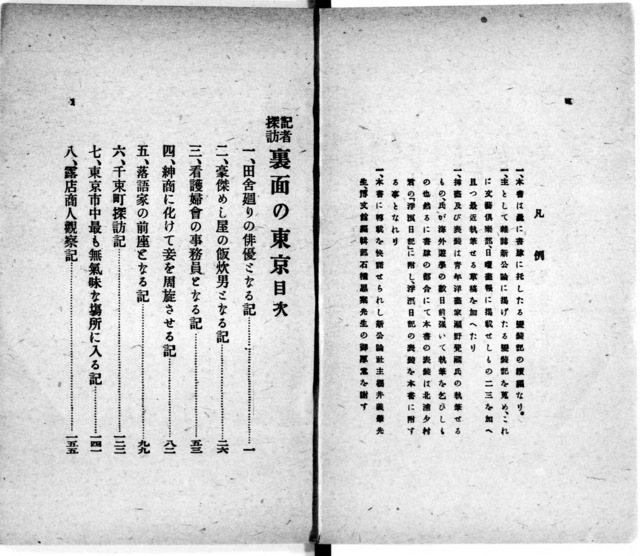 凡例
一、本書は曩に書肆に托したる變裝記の續編なり。
一、主として雜誌新公論に掲げたる變裝記を蒐め、これ
に文藝倶樂部、日曜畫報に掲載せしもの二三を加へ
且つ最近執筆せる草稿を加へたり
一、挿畫及び表裝は青年洋畫家
氏の執筆せる
もの、氏が海外遊學の數日前、強いて執筆を乞ひしも
の也然るに書肆の都合にて本書の表裝は北浦夕村
君の『浮浪日記』に附し浮浪日記の表裝を本書に附す
る事となれり
一、本書に轉載を快諾せられし新公論社主櫻井義肇先
生、博文館編輯記石橋思案先生の御厚意を謝す
記者探訪 裏面の東京目次
一、田舍廻りの俳優となる記……一
二、豪傑めし屋の飯炊男となる記……二六
三、看護婦會の事務員となる記……五三
四、紳商に化けて妾を周旋させる記……八二
五、落語家の前座となる記……九九
六、千束町探訪記……一二三
七、東京市中最も無氣味な場所に入る記……一四一
八、露店商人觀察記……一五五